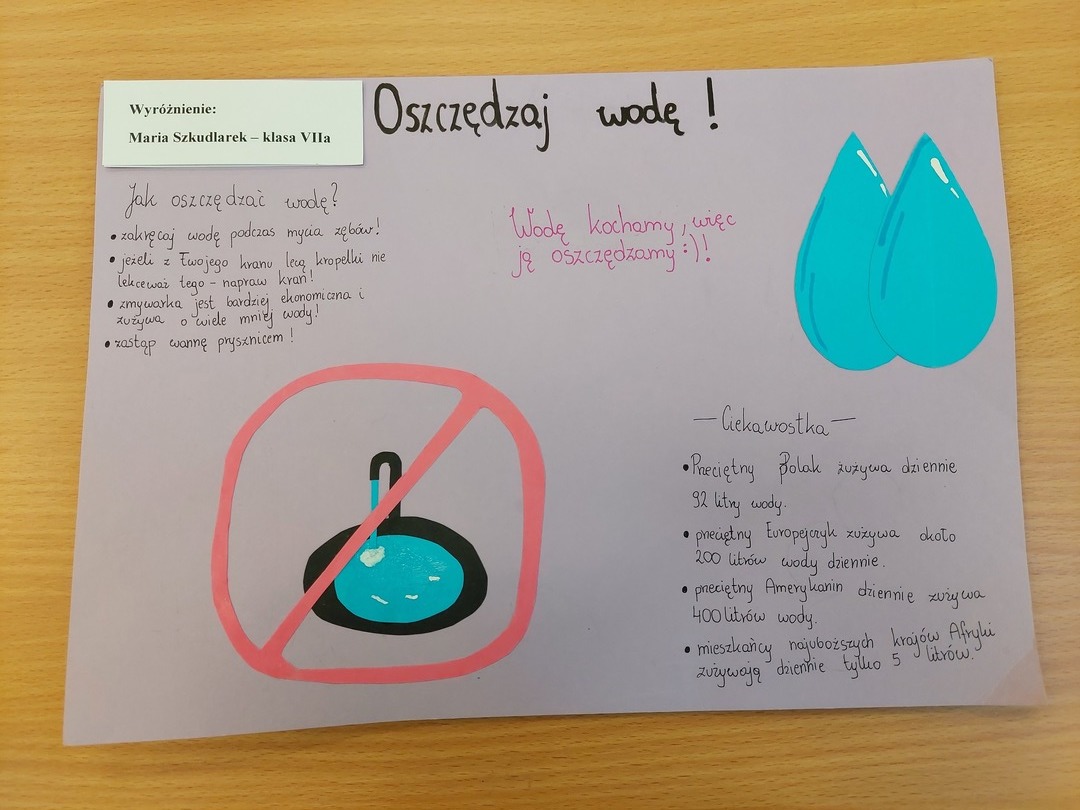 Wyróżnienie:
Maria Szkudlarek – klasa VIIa
Oszczędzaj wodę !
Jak oszczędzać wodę?
• zakręcaj wodę podczas mycia zębów!
• jeżeli z Twojego kranu lecą kropelki nie
lekceważ tego - napraw kran!
• zmywarka jest bardziej ekonomiczna i
zużywa o wiele mniej wody!
• zastąp wannę prysznicem !
Wodę kochamy, więc
ją oszczędzamy :)!
— Ciekawostka —
• Przeciętny Polak zużywa dziennie
92 litry wody.
• przeciętny Europejczyk zużywa około
200 litrów wody dziennie.
• przeciętny Amerykanin dziennie zużywa
400 litrów wody.
• mieszkańcy najuboższych krajów Afryki
zużywają dziennie tylko 5 litrów.